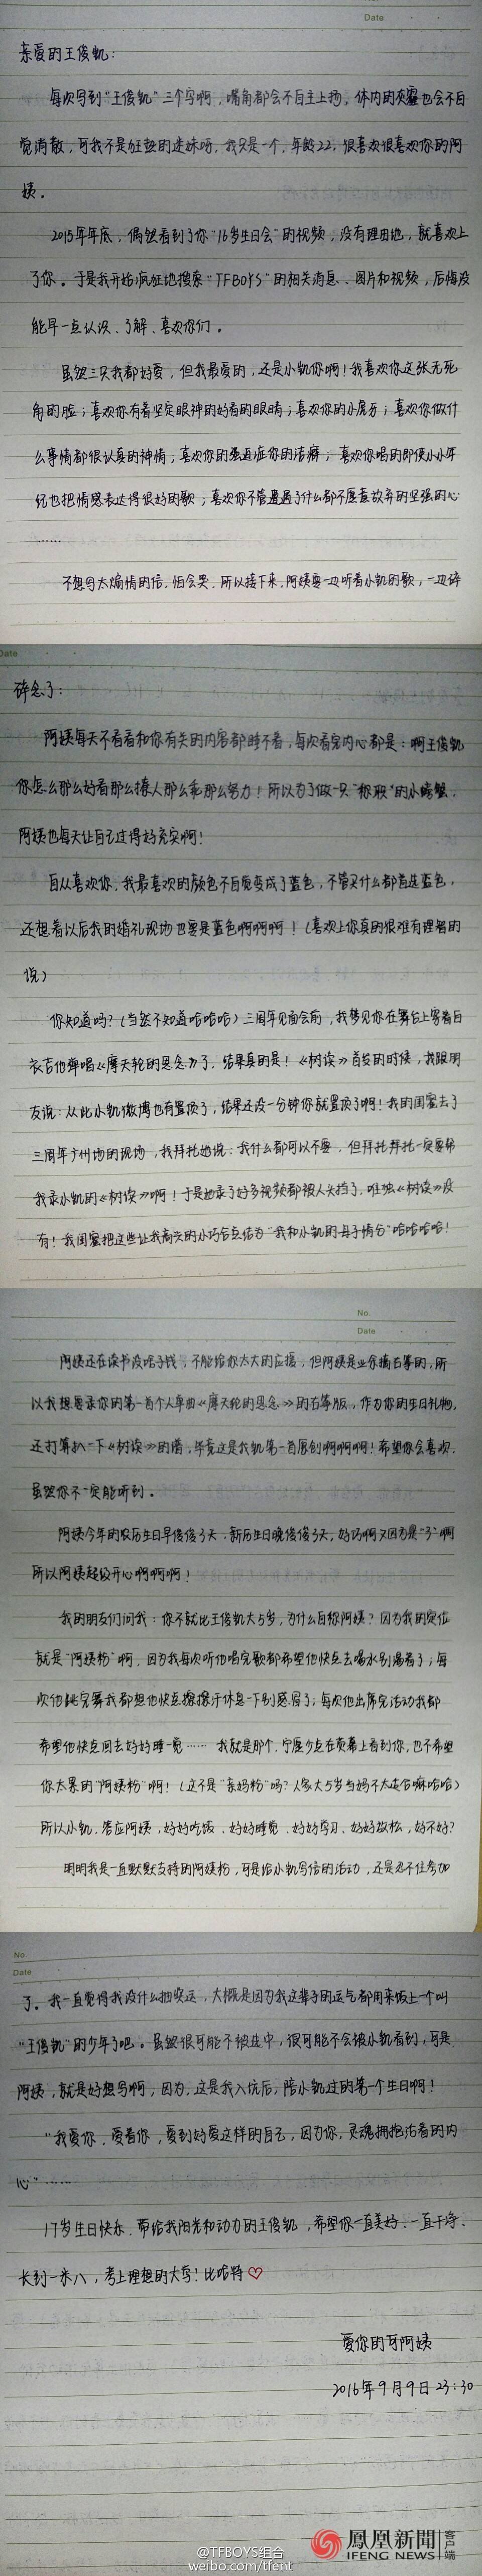 Date
亲爱的王俊凯：
每次写到“王俊凯”三个字啊，嘴角都会不自主上扬，体内的灰霾也会不自
觉消散，可我不是狂热的迷妹呀，我只是一个，年龄22，很喜欢很喜欢你的阿
姨。
2015年年底，偶然看到了你“16岁生日会”的视频，没有理由地，就喜欢上
了你。于是我开始疯狂地搜索“TFBOYS”的相关消息、图片和视频，后悔没
能早一点认识、了解、喜欢你们。
虽然三只我都好爱，但我最爱的，还是小凯你啊！我喜欢你这张无死
角的脸；喜欢你有着坚定眼神的好看的眼睛；喜欢你的小虎牙；喜欢你做什
么事情都很认真的神情；喜欢你的强迫症你的洁癖；喜欢你唱的即使小小年
纪也把情感表达得很好的歌；喜欢你不管遭遇了什么都不愿意放弃的坚强的心
……
不想写太煽情的信，怕会哭，所以接下来，阿姨要一边听着小凯的歌，一边碎
Date
碎念了：
阿姨每天不看看和你有关的内容都睡不着，每次看完内心都是：啊王俊凯
你怎么那么好看那么撩人那么乖那么努力！所以为了做一只“称职”的小螃蟹，
阿姨也每天让自己过得好充实啊！
自从喜欢你，我最喜欢的颜色不自觉变成了蓝色，不管买什么都首选蓝色，
还想着以后我的婚礼现场也要是蓝色啊啊啊！（喜欢上你真的很难有理智的
说）
你知道吗？（当然不知道哈哈哈）三周年见面会前，我梦见你在舞台上穿着白
衣吉他弹唱《摩天轮的思念》了，结果真的是！《树读》首发的时候，我跟朋
友说：从此小凯微博也有置顶了，结果还没一分钟你就置顶了啊！我的闺蜜去了
三周年广州场的现场，我拜托她说：我什么都可以不要，但拜托拜托一定要帮
我录小凯的《树读》啊！于是她录了好多视频都被人头挡了，唯独《树读》没
有！我闺蜜把这些让我高兴的小巧合总结为“我和小凯的母子情分”哈哈哈哈！
No.
Date
阿姨还在读书没啥子钱，不能给你太大的应援，但阿姨是业余搞古筝的，所
以我想要录你的第一首个人单曲《摩天轮的思念》的古筝版，作为你的生日礼物，
还打算扒一下《树读》的谱，毕竟这是我凯第一首原创啊啊啊！希望你会喜欢，
虽然你不一定能听到。
阿姨今年的农历生日早俊俊3天，新历生日晚俊俊3天，好巧啊又因为是“3”啊
所以阿姨超级开心啊啊啊！
我的朋友们问我：你不就比王俊凯大5岁，为什么自称阿姨？因为我的定位
就是“阿姨粉”啊，因为我每次听他唱完歌都希望他快点去喝水别渴着了；每
次他跳完舞我都想他快点擦擦汗休息一下别感冒了；每次他出席完活动我都
希望他快点回去好好睡一觉……我就是那个，宁愿少点在荧幕上看到你，也不希望
你太累的“阿姨粉”啊！（这不是“亲妈粉”吗？人家大5岁当妈不太适合嘛哈哈）
所以小凯，答应阿姨，好好吃饭、好好睡觉、好好学习、好好放松，好不好？
明明我是一直默默支持的阿姨粉，可是给小凯写信的活动，还是忍不住参加
No.
Date
了。我一直觉得我没什么抽奖运，大概是因为我这辈子的运气都用来饭上一个叫
“王俊凯”的少年了吧。虽然很可能不被选中，很可能不会被小凯看到，可是
阿姨，就是好想写啊，因为，这是我入坑后，陪小凯过的第一个生日啊！
“我爱你，爱着你，爱到好爱这样的自己，因为你，灵魂拥抱活着的内
心”……
17岁生日快乐，带给我阳光和动力的王俊凯，希望你一直美好、一直干净、
长到一米八，考上理想的大学！比哈特♡
爱你的可阿姨
2016年9月9日 23:30
@TFBOYS组合
weibo.com/tfent
鳳凰新聞
IFENG NEWS
客户端